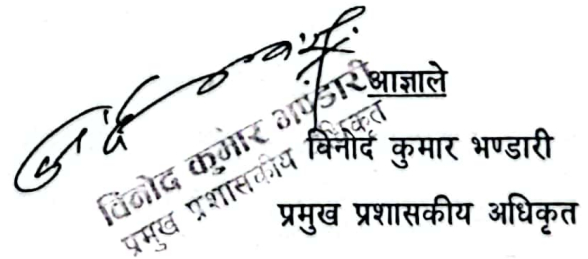 आज्ञाले
विनोद कुमार भण्डारी
प्रमुख प्रशासकीय अधिकृत
विनोद कुमार भण्डारी
प्रमुख प्रशासकीय अधिकृत